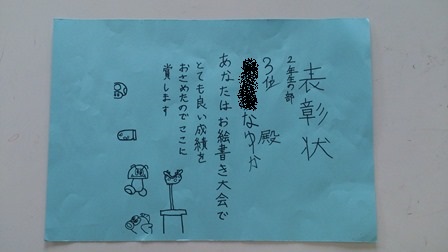 表彰状
2年生の部
3位
なゆか 殿
あなたはお絵書き大会で
とても良い成績を
おさめたのでここに
賞します